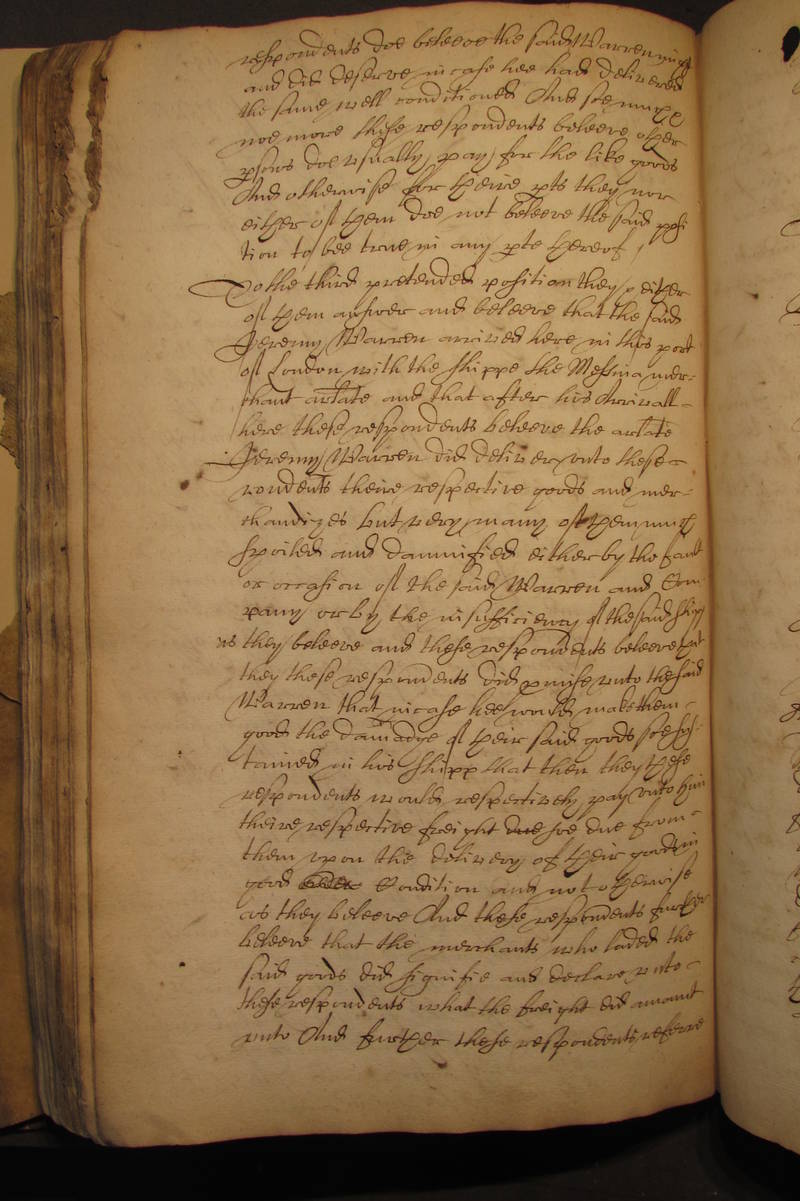 respondents doe beleeve the said Warren
and did deserve in case hee had delivered
the same well conditioned And soe much
noe more these respondents beleeve other
psons doe usually pay for the like goods
And otherwise for theire pts they nor
either of them doe not beleeve the said posi
tion to bee true in any pte thereof /
To the third pretended position they & either
of them answer and beleeve that the said
Jeremy Warren arrived here in this port
of London with the shippe the Messina mer-
chant arlate and that after his Arrivall -
here these respondents beleeve the arlate
Jeremy Warren did deliver unto these -
rondents theire respective goods and mer-
chandizes but very many of them much
spoiled and damnified either by the fault
or occasion of the said Warren and Com
pany or by the insufficiency of the said shipp
as they beleeve and these respondents beleeve that
they these respondents did pmise unto the said
Warren that in case hee would make them -
good the damadge of their said goods soe sus-
tained in his shipp that then they these
respondents would respectively pay unto him
theire respective freight due soe due from -
them upon the delivery of their goods in
good Condition and not otherwise
as they beleeve And these respondents further
beleeve that the merchants who laded the
said goods did signifie and declare unto -
these respondents what the freight did amount
unto And further these respondents referre